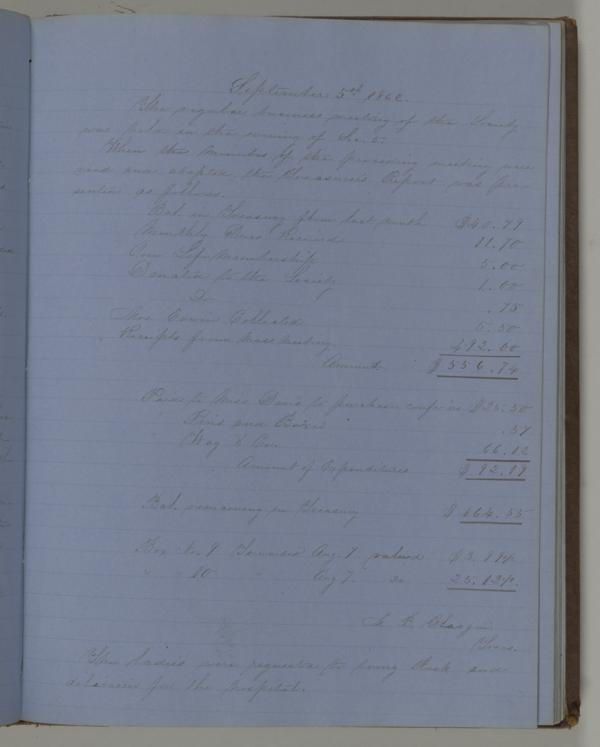 September 5th 1862.
The regular business meeting of the Society
was held in the evening of Sep. 5.
When the minutes of the preceding meeting were
read and adopted, the Treasurer's Report was pre-
sented as follows.
Bal. in Treasury from last month $40.79
Monthly Dues Received 11.70
One Life Membership 5.00
Donation to the Society 1.00
Do .75
Mrs. Collected 5.50
Receipts from Mass Meeting 492.00
Amount $556.74
Paid to Mrs. Davis to purchase $25.50
Pins and Boxes .57
Way & Co. 66.12
Amount of Expenditures $92.19
Bal. remaining in Treasury $464.55
Box No. 9 Forwarded Aug. 7 valued
" " 10 " Aug 7. do
Treas.
The ladies were requested to bring and
for the hospital.